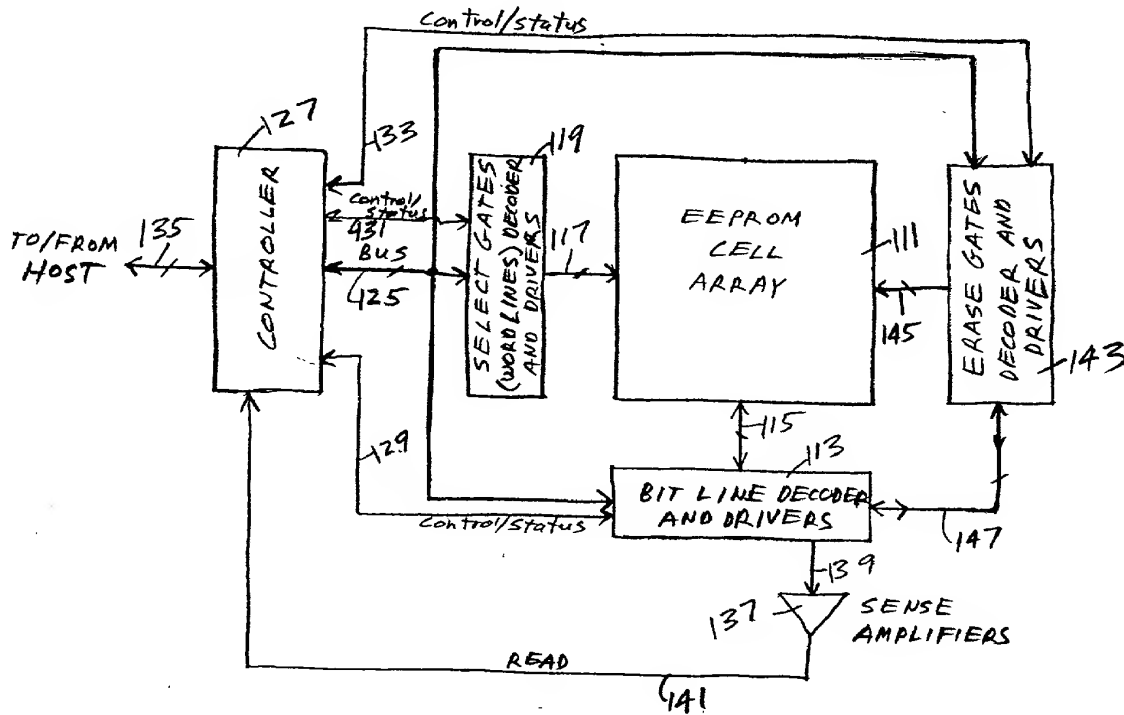 Control/status
127
133
119
CONTROLLER
Control/
status
431
BUS
425
SELECT GATES
(WORD LINES) DECODER
AND DRIVERS
117
EEPROM
CELL
ARRAY
111
145
ERASE GATES
DECODER AND
DRIVERS
143
TO/FROM
HOST
135
129
115
113
BIT LINE DECODER
AND DRIVERS
Control/status
147
139
137
SENSE
AMPLIFIERS
READ
141